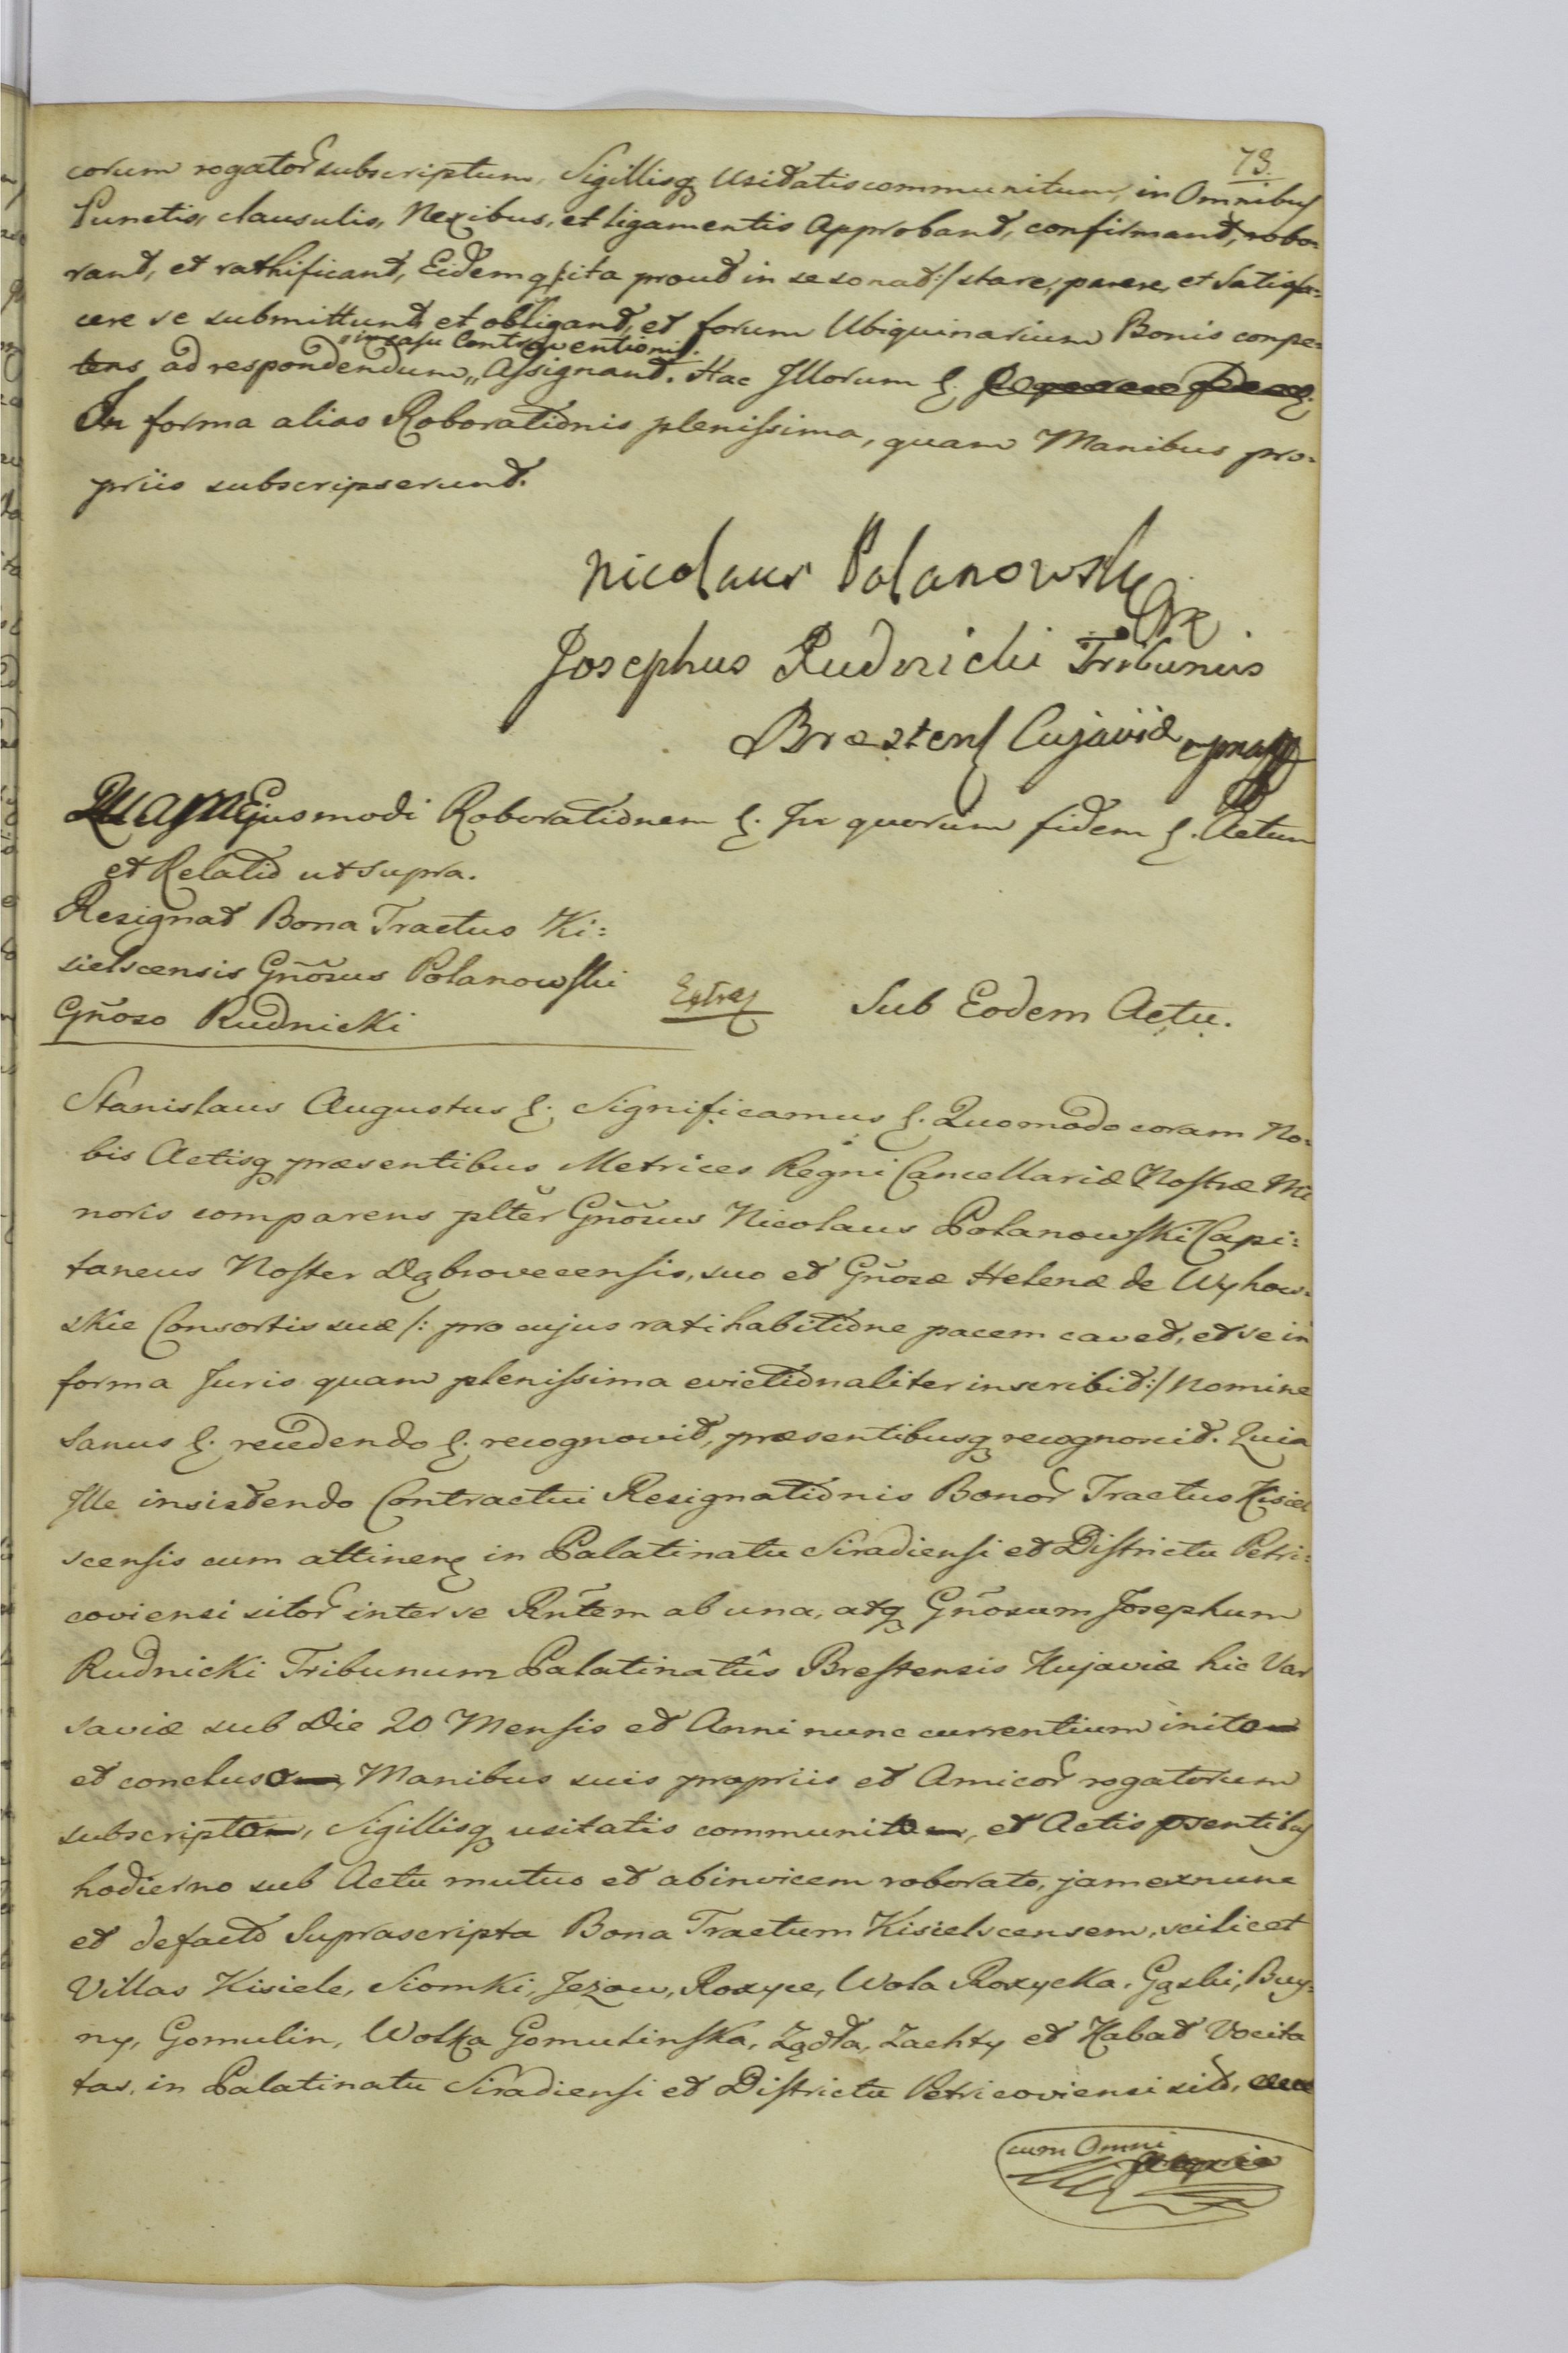 73.
corum rogator subscriptum, Sigillisq Usitatis communitum, in Omnibus
Punctis, clausulis, Nexibus, et ligamentis Approbant, confirmant, robo=
rant, et rathificant, Eidemq /: ita prout in se sonat :/ stare, parere, et Satisfa=
cere se submittunt, et obligant, et forum Ubiquinarium Bonis compe=
"in casu Contraventionis.
tens ad respondendum,, Assignant. Hac Illorum &.
In forma alias Roborationis plenissima, quam Manibus pro=
priis subscripserunt.
Nicolaus Polanowski
Josephus Rudnicki Tribunus
Brestens Cujaviæ mpr
Quam Ejusmodi Roborationem &. In quorum fidem &. Actum
et Relatio ut supra.
Resignat Bona Tractus Ki=
sielscensis Gñosus Polanowski
Gñoso Rudnicki
Extra
Sub Eodem Actu.
Stanislaus Augustus &. Significamus &. Quomodo coram No=
bis Actisq præsentibus Metrices Regni Cancellariæ Nostræ Mi
noris comparens plter Gñosus Nicolaus Polanowski Capi=
taneus Noster Dąbrovecensis, suo et Gñosæ Helenæ de Wyhow=
skie Consortis suæ /: pro cujus ratihabitione pacem cavet, et se in
forma Juris quam plenissima evictionaliter inscribit :/ nomine
Sanus &. recedendo &. recognovit, præsentibusq recognoscit. Quia
Ille insistendo Contractui Resignationis Bonor Tractus Kisiel
scensis cum attinen in Palatinatu Siradiensi et Districtu Petri=
coviensi sitor inter se Rñtem ab una, atq Gñosum Josephum
Rudnicki Tribunum Palatinatûs Brestensis Kujaviæ hic Var
saviæ sub Die 20 Mensis et Anni nunc currentium inito
et concluso, Manibus suis propriis et Amicor rogatorum
subscripto, Sigillisq usitatis communito, et Actis psentibus
hodierno sub Actu mutuo et abinvicem roborato, jam exnunc
et defacto Suprascripta Bona Tractum Kisielscensem, scilicet
Villas Kisiele, Siomki, Jezow, Roxyce, Wola Roxycka, Gąski, Buy=
ny, Gomulin, Wolka Gomulinska, Żądła, Zachty et Kabat Vocita
tas, in Palatinatu Siradiensi et Districtu Petricoviensi sit,
cum Omni